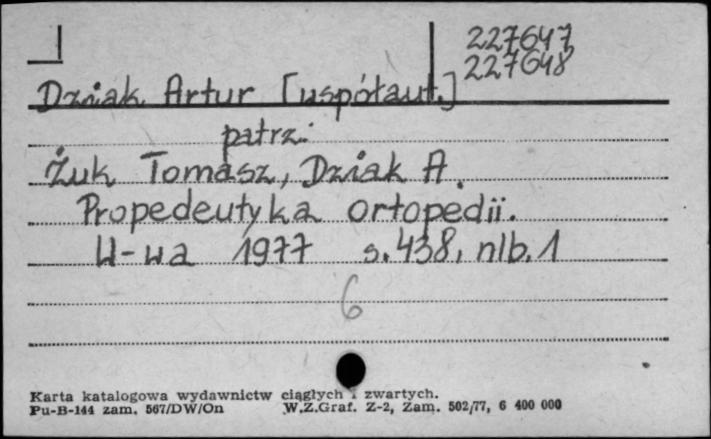 227647
227648
Dziak Artur [współaut.]
patrz:
Żuk Tomasz, Dziak A.
Propedeutyka ortopedii.
W-wa 1977 s. 438, nlb. 1
6
Karta katalogowa wydawnictw ciągłych i zwartych.
Pu-B-144 zam. 567/DW/On W.Z.Graf. Z-2, Zam. 502/77, 6 400 000